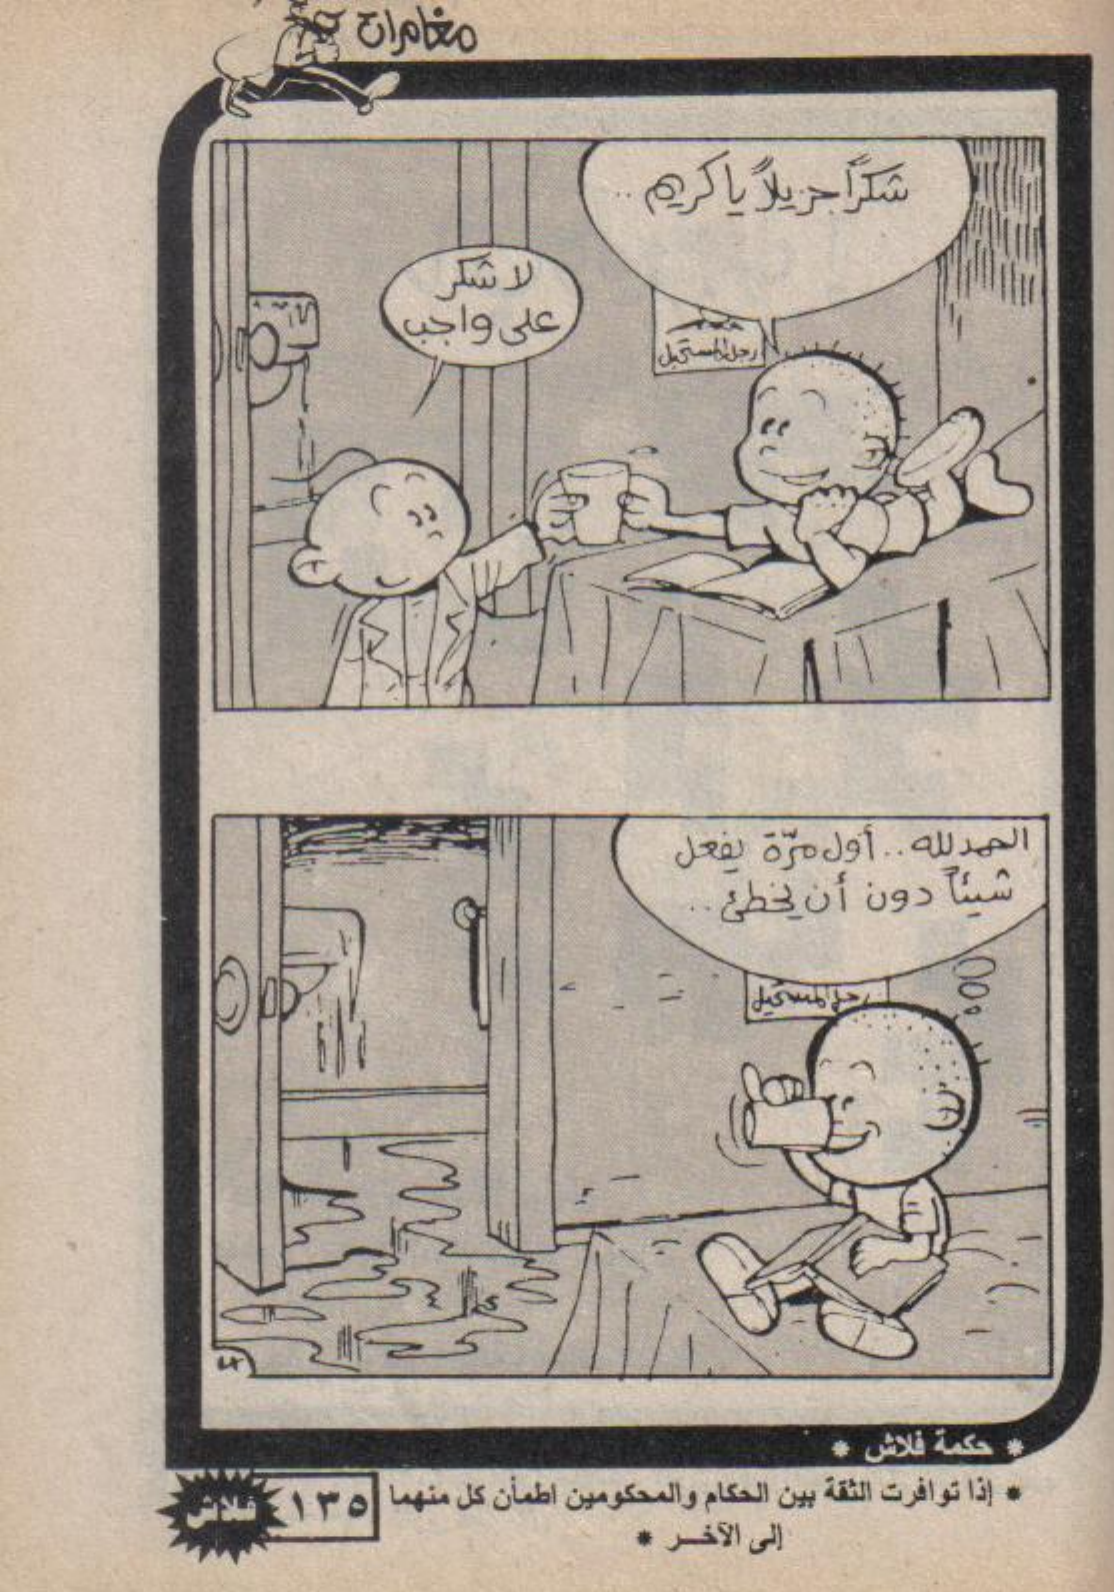 مغامرات
شكراً جزيلاً يا كريم ..
لا شكر
على واجب
رجل المستحيل
الحمد لله .. أول مرّة يفعل
شيئاً دون أن يخطئ ..
رجل المستحيل
٤٢
* حكمة فلاش *
* إذا توافرت الثقة بين الحكام والمحكومين اطمأن كل منهما
إلى الآخــر *
١٣٥
فلاش